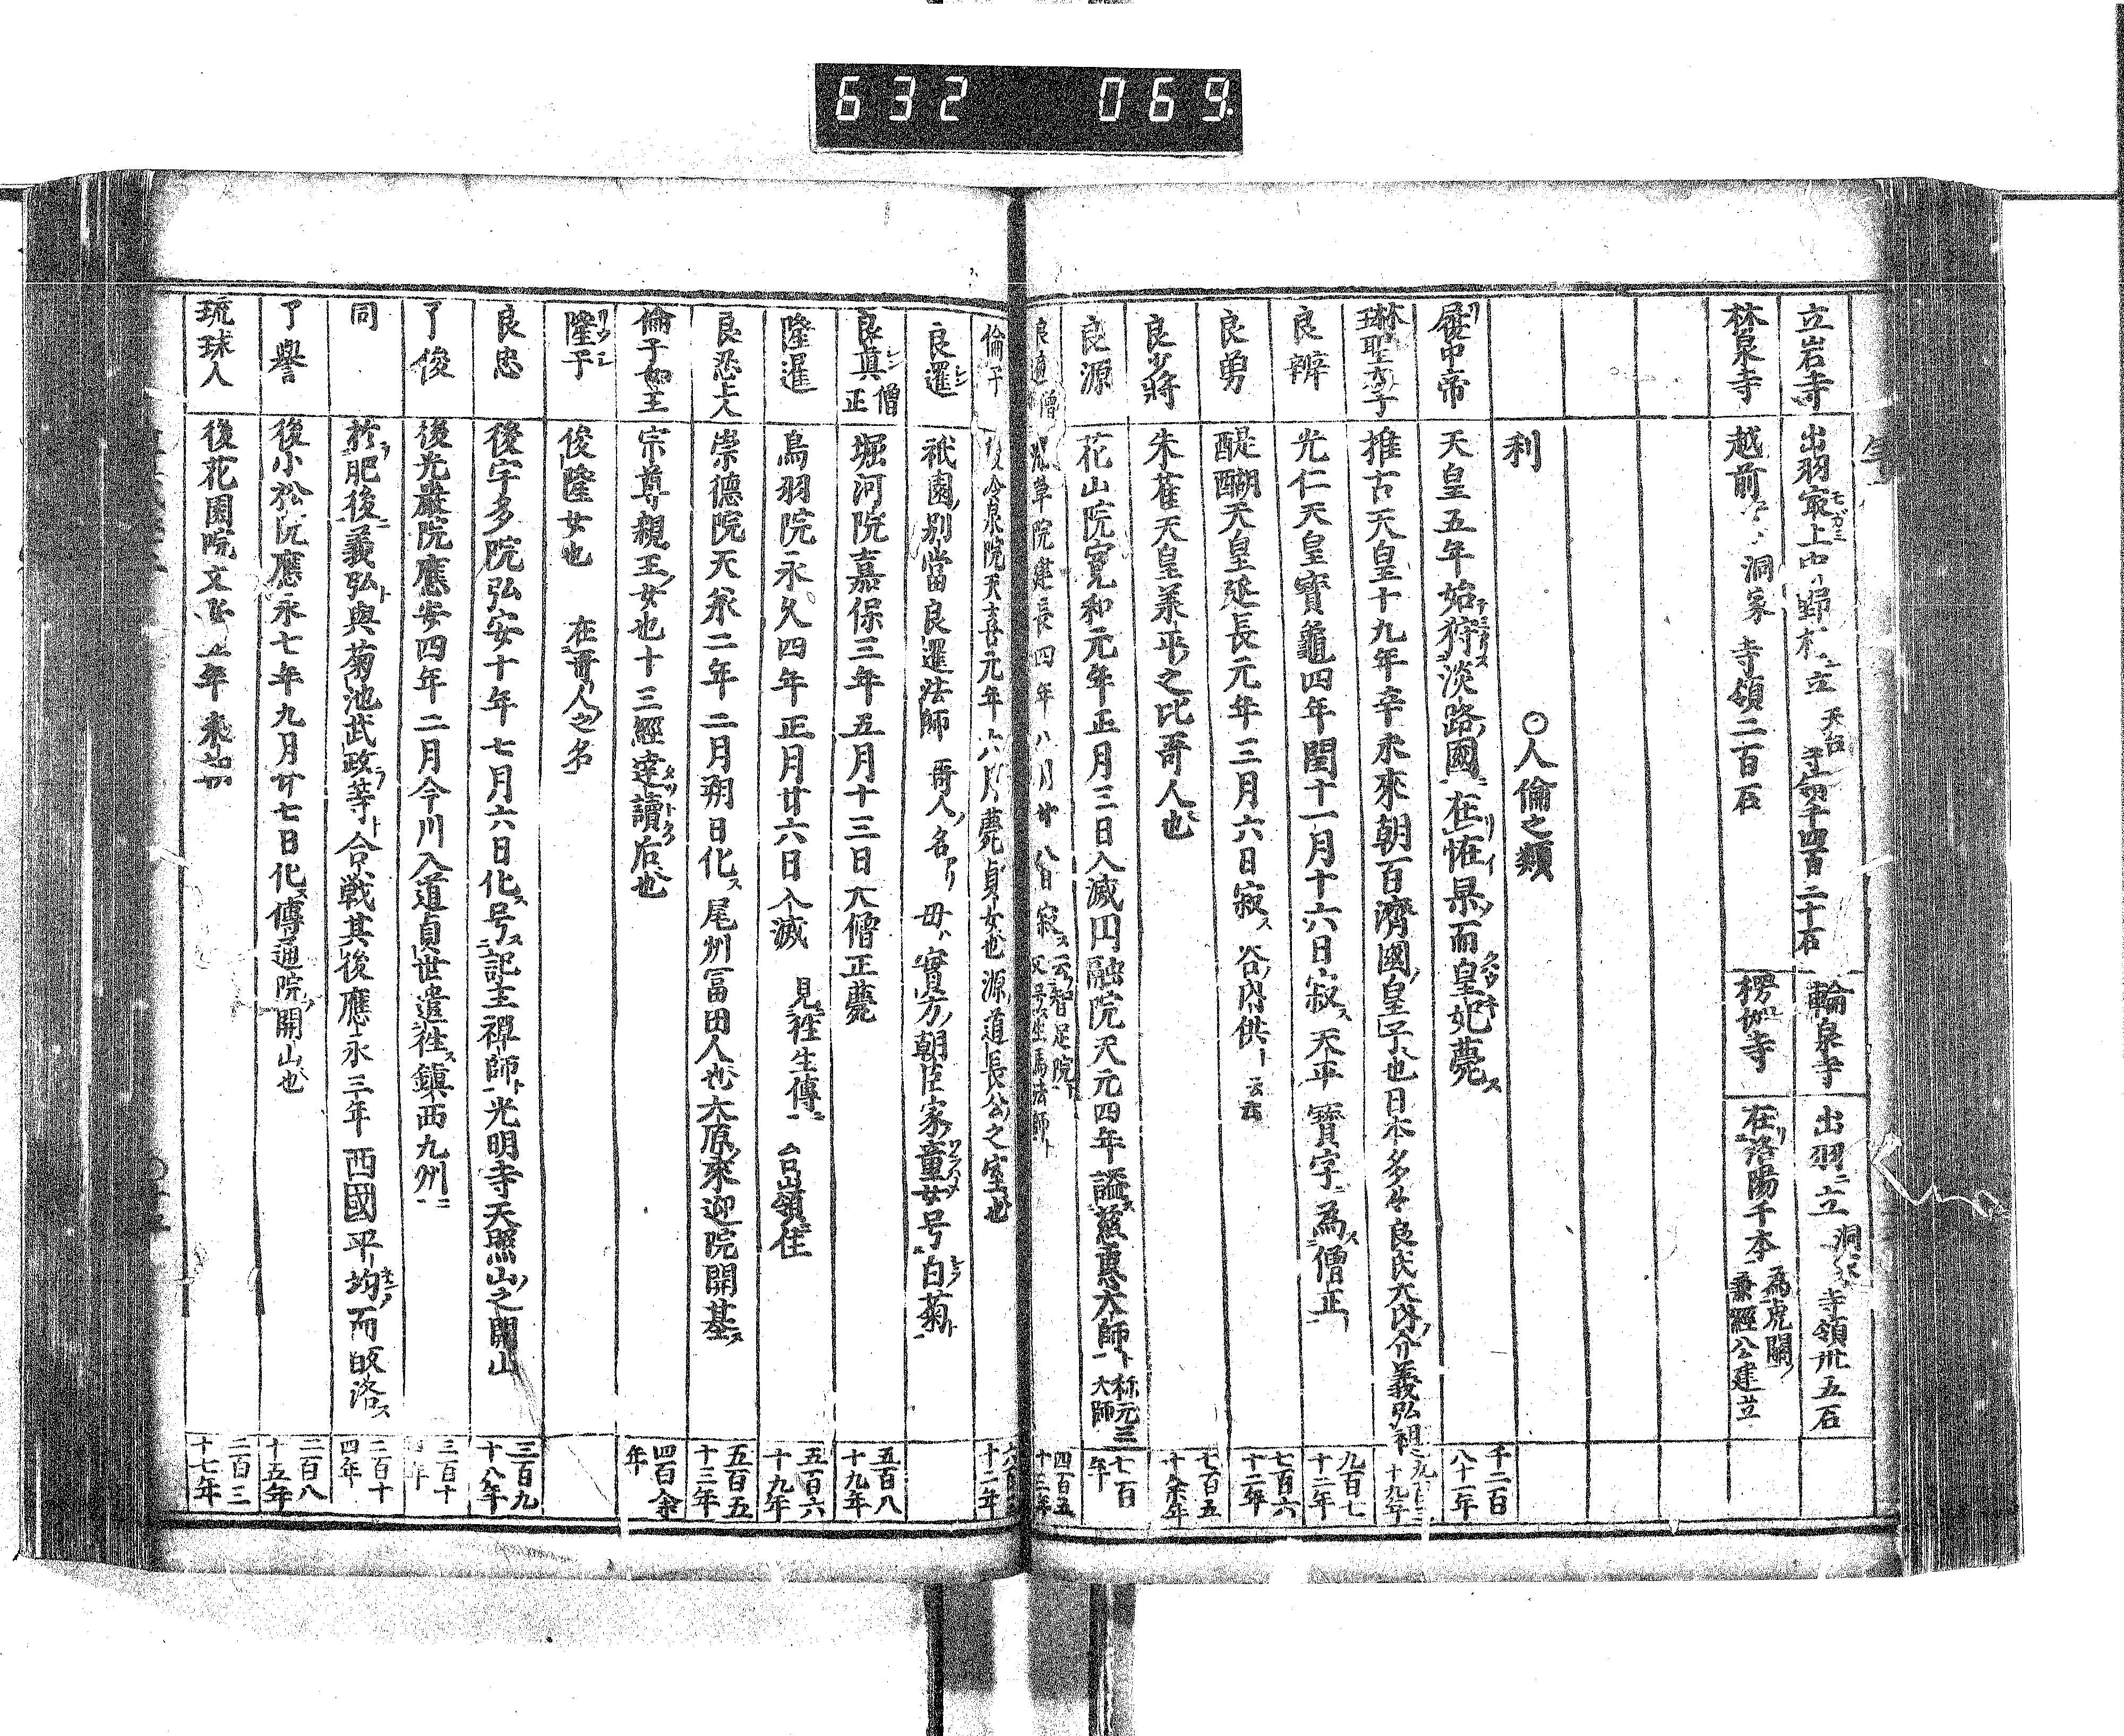 632 069
立岩寺 出羽最上 立 天台 寺領千四百二十石 輪泉寺 出羽ニ立 洞家 寺領卅五石
林泉寺 越前 洞家 寺領二百石 楞伽寺 在洛陽千本 為克關 兼經公建立
利
○人倫之類
履中帝 天皇五年始狩淡路國ニ在 而皇妃薨ス 千二百八十一年
琳聖太子 推古天皇十九年辛未來朝百濟國ノ皇子也日本多々良氏大内ノ介義弘祖 十九年
良辨 光仁天皇寶龜四年閏十一月十六日寂ス 天平寶字ニ為僧正 九百七十二年
良勇 醍醐天皇延長元年三月六日寂ス 内供 云云 七百六十二年
良少將 朱雀天皇羕平之比哥人也 七百五十余年
良源 花山院寛和元年正月三日入滅円融院天元四年謚慈惠大師ト 称元三大師 七百年
良遍僧 院建長四年八月廿八日寂ス 智足院 法師ト 四百五十三年
倫子 冷泉院天喜元年六月薨貞女也源ノ道長公之室也 十二年
良暹 祇園別當良暹法師 哥人ノ名 母ハ實方朝臣家童女号白菊ト
良真僧正 堀河院嘉保三年五月十三日大僧正薨 五百八十九年
隆暹 鳥羽院永久四年正月廿六日入滅 見徃生傳ニ 台嶺住 五百六十九年
良忍上人 崇德院天承二年二月朔日化ス尾州冨田人也大原來迎院開基ス 五百五十三年
倫子女王 宗尊親王ノ女也十三經逹讀后也 四百余年
隆子 俊隆女也 在哥人之名
良忠 後宇多院弘安十年七月六日化ス号ス記主禅師ト光明寺天照山ノ之開山 三百九十八年
了俊 後光嚴院應安四年二月今川入道貞世遣徃ス鎮西九州ニ 三百十四年
同 於肥後ニ義弘ト與菊池武政等ト合戰其後應永三年西國平均而皈洛ス 二百十四年
了譽 後小松院應永七年九月廿七日化ス傳通院ノ開山也 二百八十五年
琉球人 後花園院文 年來 二百三十七年